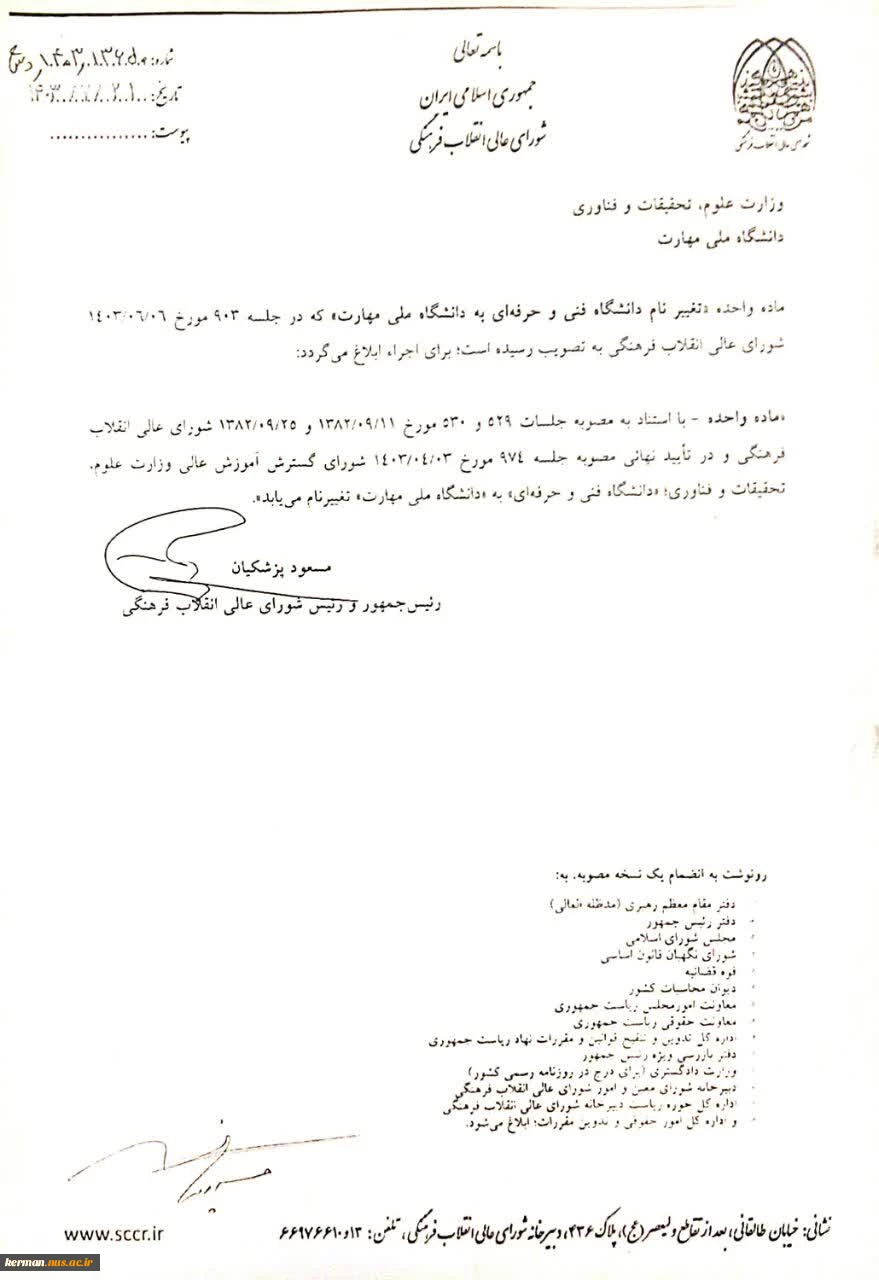 باسمه تعالی
جمهوری اسلامی ایران
شورای عالی انقلاب فرهنگی
شماره:
تاریخ:
پیوست: ................
شورای عالی انقلاب فرهنگی
وزارت علوم، تحقیقات و فناوری
دانشگاه ملی مهارت
ماده واحده «تغییر نام دانشگاه فنی و حرفه‌ای به دانشگاه ملی مهارت» که در جلسه ۹۰۳ مورخ ۱٤۰۳/۰٦/۰٦
شورای عالی انقلاب فرهنگی به تصویب رسیده است؛ برای اجراء ابلاغ می‌گردد:
«ماده واحده - با استناد به مصوبه جلسات ۵۲۹ و ۵۳۰ مورخ ۱۳۸۲/۰۹/۱۱ و ۱۳۸۲/۰۹/۲۵ شورای عالی انقلاب
فرهنگی و در تأیید نهائی مصوبه جلسه ۹۷٤ مورخ ۱٤۰۳/۰٤/۰۳ شورای گسترش آموزش عالی وزارت علوم،
تحقیقات و فناوری؛ «دانشگاه فنی و حرفه‌ای» به «دانشگاه ملی مهارت» تغییرنام می‌یابد».
مسعود پزشکیان
رئیس‌جمهور و رئیس شورای عالی انقلاب فرهنگی
رونوشت به انضمام یک نسخه مصوبه، به:
دفتر مقام معظم رهبری (مدظله العالی)
دفتر رئیس جمهور
مجلس شورای اسلامی
شورای نگهبان قانون اساسی
قوه قضائیه
دیوان محاسبات کشور
معاونت امورمجلس ریاست جمهوری
معاونت حقوقی ریاست جمهوری
اداره کل تدوین و تنقیح قوانین و مقررات نهاد ریاست جمهوری
دفتر بازرسی ویژه رئیس جمهور
وزارت دادگستری (برای درج در روزنامه رسمی کشور)
دبیرخانه شورای معین و امور شورای عالی انقلاب فرهنگی
اداره کل حوزه ریاست دبیرخانه شورای عالی انقلاب فرهنگی
و اداره کل امور حقوقی و تدوین مقررات؛ ابلاغ می‌شود.
نشانی: خیابان طالقانی، بعد از تقاطع ولیعصر (عج)، پلاک ۴۳۶، دبیرخانه شورای عالی انقلاب فرهنگی، تلفن: ۱۳و۶۶۹۷۶۶۱۰
www.sccr.ir
kerman.nus.ac.ir